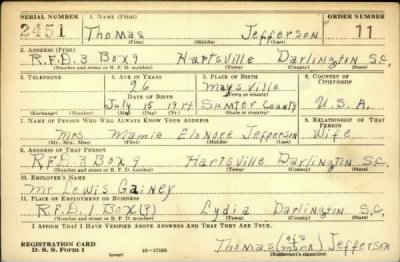 SERIAL NUMBER 1. NAME (Print) ORDER NUMBER
2451 Thomas Jefferson 11
(First) (Middle) (Last)
2. ADDRESS (Print)
R.F.D. 3 Box 9 Hartsville Darlington S.C.
(Number and street or R. F. D. number) (Town) (County) (State)
3. TELEPHONE 4. AGE IN YEARS 5. PLACE OF BIRTH 6. COUNTRY OF CITIZENSHIP
26 Maysville
DATE OF BIRTH (Town or county)
July 15 1914 Sumter County U.S.A.
(Exchange) (Number) (Mo.) (Day) (Yr.) (State or country)
7. NAME OF PERSON WHO WILL ALWAYS KNOW YOUR ADDRESS 8. RELATIONSHIP OF THAT PERSON
Mrs Mamie Elanore Jefferson Wife
(Mr., Mrs., Miss) (First) (Middle) (Last)
9. ADDRESS OF THAT PERSON
R.F.D. 3 Box 9 Hartsville Darlington S.C.
(Number and street or R. F. D. number) (Town) (County) (State)
10. EMPLOYER'S NAME
Mr Lewis Gainey
11. PLACE OF EMPLOYMENT OR BUSINESS
R.F.D. 1 Box (?) Lydia Darlington S.C.
(Number and street or R. F. D. number) (Town) (County) (State)
I AFFIRM THAT I HAVE VERIFIED ABOVE ANSWERS AND THAT THEY ARE TRUE.
REGISTRATION CARD
D. S. S. Form 1 (over) 16—17105 Thomas (his X mark) Jefferson
(Registrant's signature)